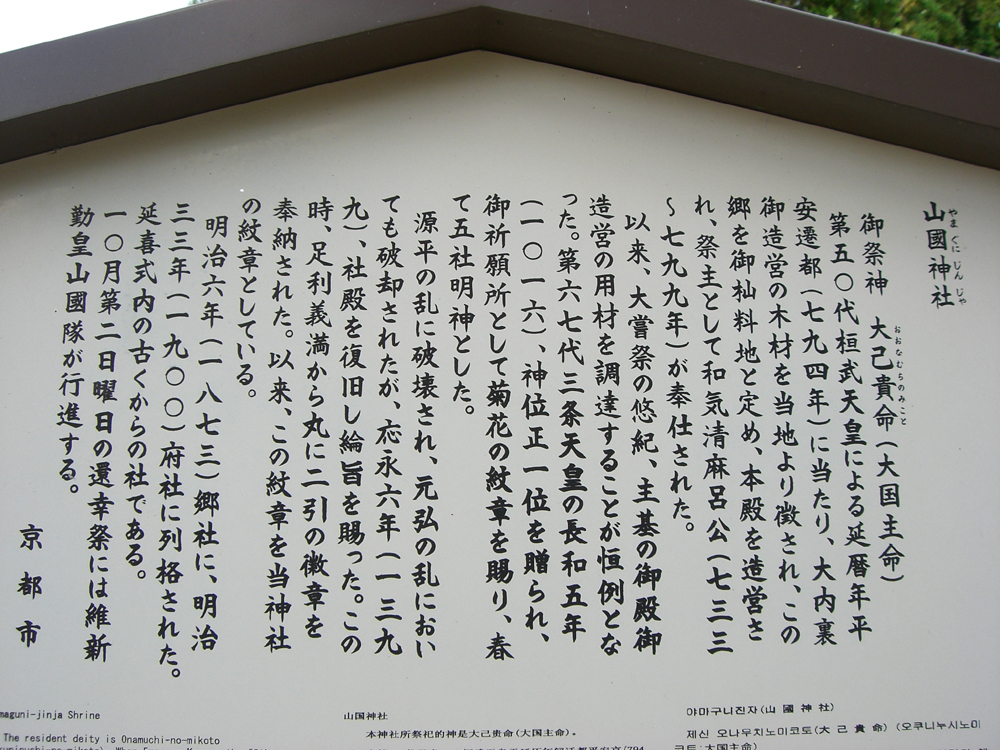 山國神社
やまくにじんじゃ
御祭神　大己貴命(大国主命)
おおなむちのみこと
第五〇代桓武天皇による延暦年平
安遷都(七九四年)に当たり、大内裏
御造営の木材を当地より徴され、この
郷を御杣料地と定め、本殿を造営さ
れ、祭主として和気清麻呂公(七三三
～七九九年)が奉仕された。
以来、大嘗祭の悠紀、主基の御殿御
造営の用材を調達することが恒例とな
った。第六七代三条天皇の長和五年
(一〇一六)、神位正一位を贈られ、
御祈願所として菊花の紋章を賜り、春
て五社明神とした。
源平の乱に破壊され、元弘の乱におい
ても破却されたが、応永六年(一三九
九)、社殿を復旧し綸旨を賜った。この
時、足利義満から丸に二引の徽章を
奉納された。以来、この紋章を当神社
の紋章としている。
明治六年(一八七三)郷社に、明治
三三年(一九〇〇)府社に列格された。
延喜式内の古くからの社である。
一〇月第二日曜日の還幸祭には維新
勤皇山國隊が行進する。
京都市
maguni-jinja Shrine
The resident deity is Onamuchi-no-mikoto
山国神社
本神社所祭祀的神是大己贵命(大国主命)。
야마구니진자(山國神社)
제신 오나무치노미코토(大己貴命) (오쿠니누시노미
코토:大国主命)